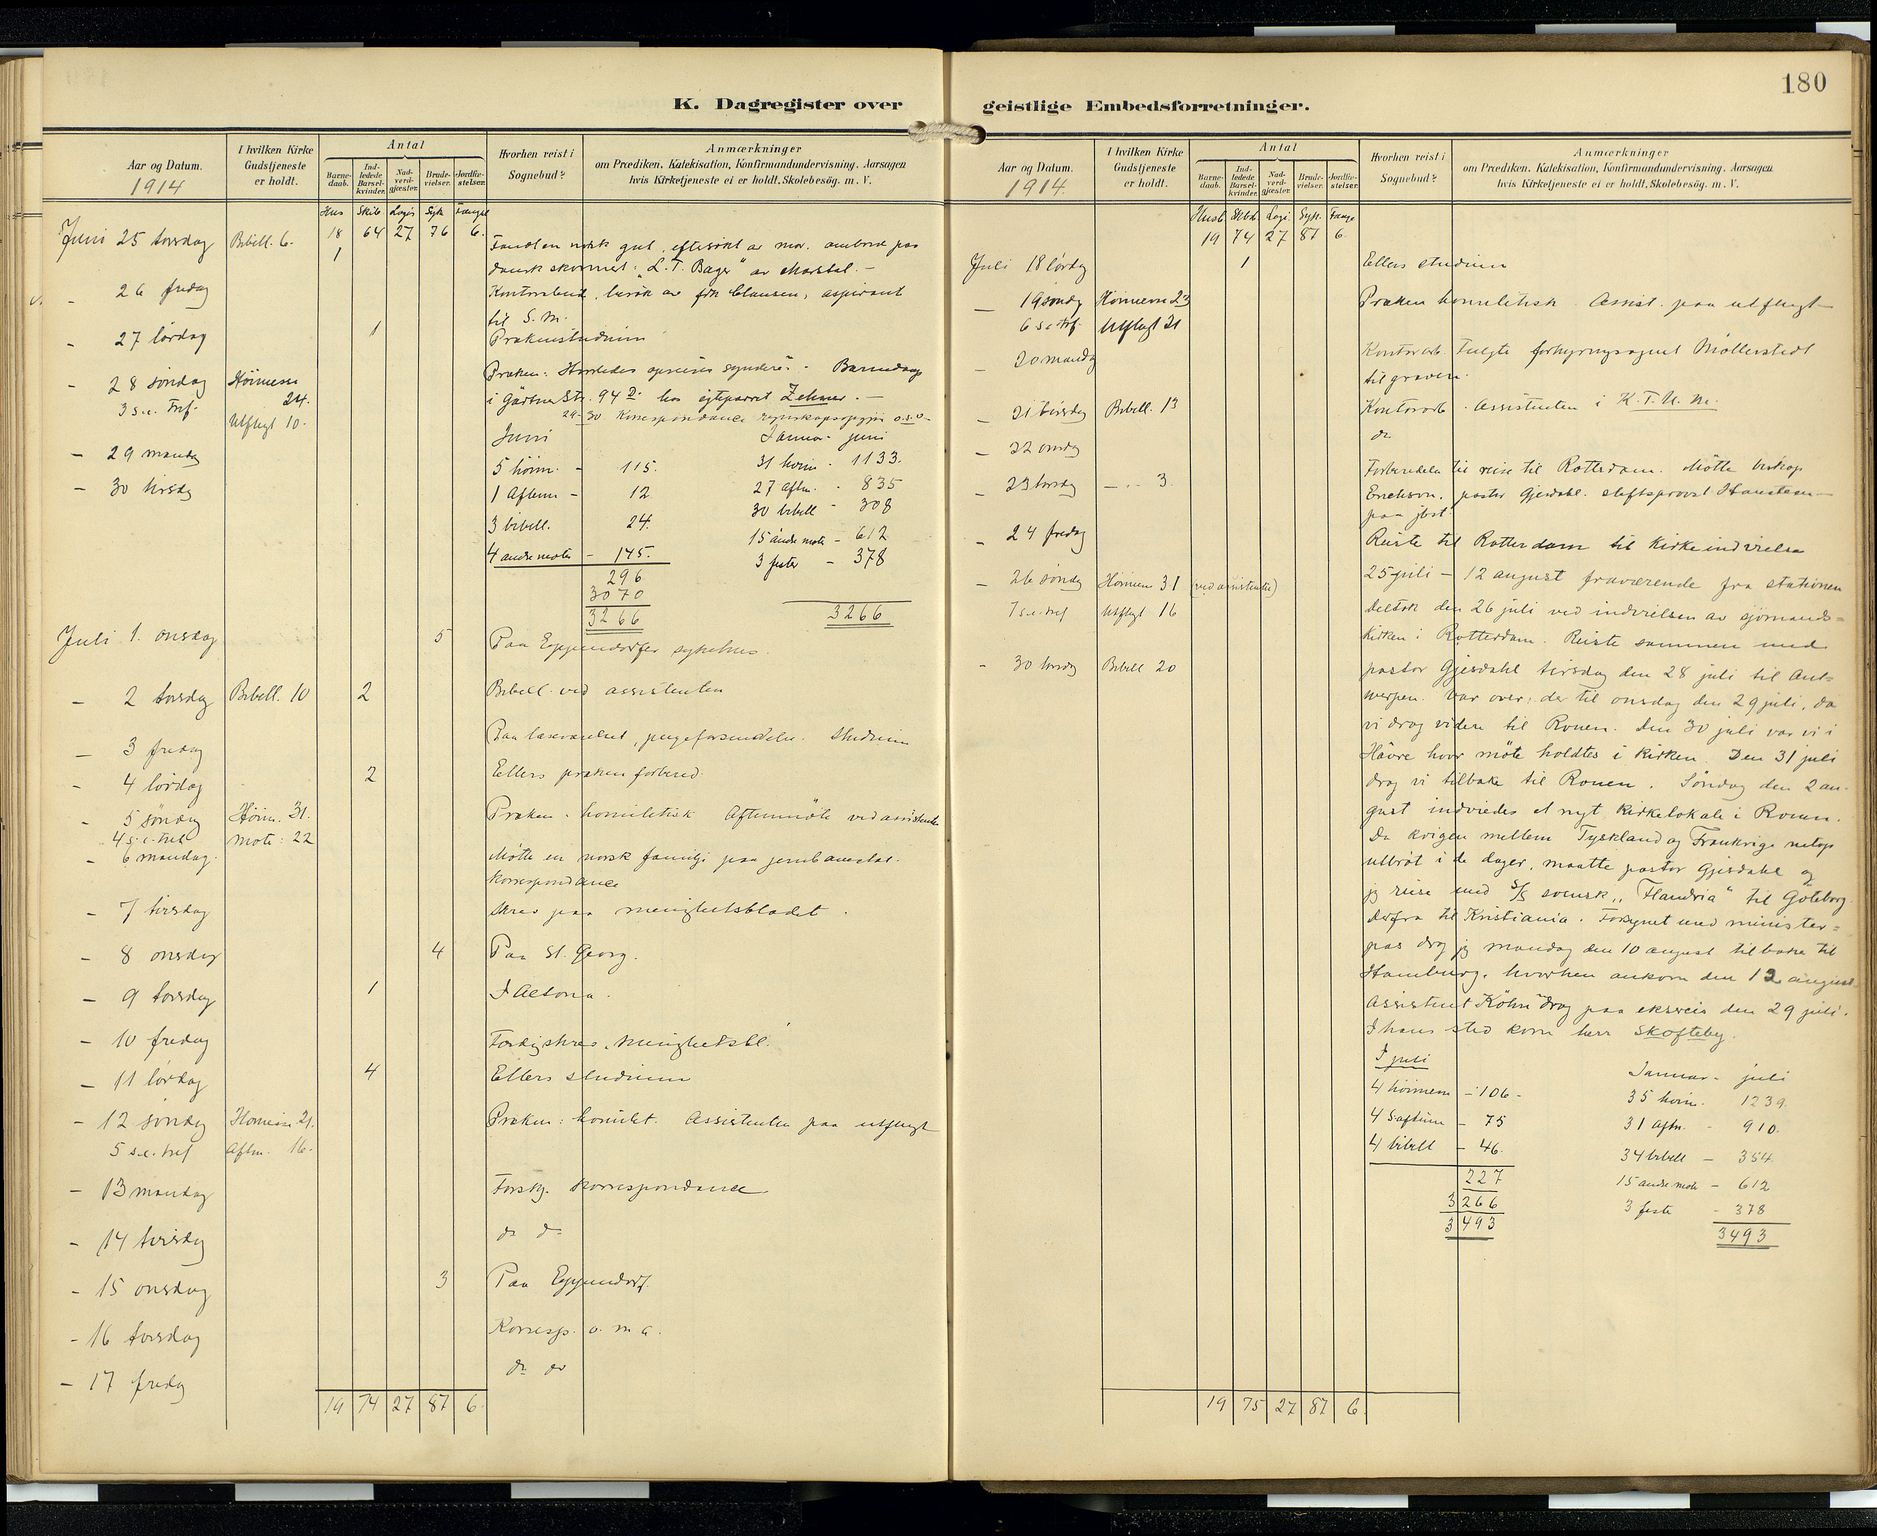 180
K. Dagregister over geistlige Embedsforretninger.
Aar og Datum.
1914
I hvilken Kirke Gudstjeneste er holdt.
Antal
Barnedaab.
Indledede Barselkvinder.
Nadverdgjæster.
Brudevielser.
Jordfæstelser.
Hvorhen reist i Sognebud?
Anmærkninger
om Prædiken, Katekisation, Konfirmandundervisning, Aarsagen
hvis Kirketjeneste ei er holdt, Skolebesøg. m. V.
Hus Skib Logi Syk Fængsel
Juni 25 torsdag Bibell. 6. 18 64 27 76 6.
1 Fandt en norsk gut, eftersøkt av mor, ombord paa
dansk skonnert: "L. T. Bager" av Marstal. –
– 26 fredag Kontorarbeid, besøk av frk Clausen, aspirant
til S. M.
– 27 lørdag 1 Prækenstudium
– 28 søndag Høimesse 24. Præken: Hvorledes synderes. – Barnedaab
3 s.e. Tref. Utflugt 10. i Gärtnerstr. 94 D. hos egteparret Zehmer. –
– 29 mandag 29–30 Korrespondance regnskapsopgjør o.s.v.
– 30 tirsdag
Juni Januar – juni
5 høim. – 115. 31 høim – 1133.
1 Aftenm – 12 27 Aftm. – 835
3 bibell. 24. 30 bibell – 308
4 andre møter – 145. 15 andre møter – 612
3 fester – 378
296
3070
3266 3266
Juli 1. onsdag 5 Paa Eppendorfer sykehus.
– 2 torsdag Bibell. 10 2 Bibell. ved assistenten
– 3 fredag Paa læseværelset, pengeforsendelse. Studium
– 4 lørdag 2 Ellers prækenforbered.
– 5 søndag Høim. 31. Præken: homiletisk Aftenmøte ved assistenten
4 s.e. tref møte: 22
– 6 mandag. Møtte en norsk familje paa jernbanestat.
Korrespondance
– 7 tirsdag Skrev paa menighetsbladet.
– 8 onsdag 4 Paa St. Georg.
– 9 torsdag 1 I Altona.
– 10 fredag Færdigskrev "Menighetsbl."
– 11 lørdag 4 Ellers studium
– 12 søndag Høimesse 21. Præken: homilet. Assistenten paa utflugt
5 s.e. tref Aftm. 16.
– 13 mandag Forskj. korrespondance
– 14 tirsdag do do
– 15 onsdag 3 Paa Eppendorf.
– 16 torsdag Korresp. o. m. a.
– 17 fredag do do
19 74 27 87 6.
Aar og Datum.
1914.
I hvilken Kirke Gudstjeneste er holdt.
Antal
Barnedaab.
Indledede Barselkvinder.
Nadverdgjæster.
Brudevielser.
Jordfæstelser.
Hvorhen reist i Sognebud?
Anmærkninger
om Prædiken, Katekisation, Konfirmandundervisning, Aarsagen
hvis Kirketjeneste ei er holdt, Skolebesøg. m. V.
Husb Skbb Logi. Syk. Fænge
19 74 27 87 6.
Juli 18 lørdag 1 Ellers studium
– 19 søndg Høimesse 23 Præken homiletisk. Assist. paa utflugt
6 s.e. tref. Utflugt 21
– 20 mandag Kontorarb. Fulgte forhyringsagent Möllerstedt
til graven.
– 21 tirsdag Bibell. 13 Kontorarb. Assistenten i K. F. U. M.
– 22 onsdag do
– 23 torsdag – " – 3. Forberedelse til reise til Rotterdam. Møtte biskop
Erichson, pastor Gjesdahl, stiftsprovst Hansteen
paa jbst.
– 24 fredag Reiste til Rotterdam til kirkeindvielse
– 26 søndg Høimesse 31 (ved assistenten) 25 juli – 12 august fraværende fra stationen
7 s.e. tref Utflugt 16 Deltok den 26 juli ved indvielsen av sjømands=
kirken i Rotterdam. Reiste sammen med
– 30 torsdag Bibell 20 pastor Gjesdahl tirsdag den 28 juli til Ant=
werpen. Var over der til onsdag den 29 juli, da
vi drog videre til Rouen. Den 30 juli var vi i
Hâvre hvor møte holdtes i kirken. Den 31 juli
drog vi tilbake til Rouen. Søndag den 2 au=
gust indviedes et nyt kirkelokale i Rouen.
Da krigen mellem Tyskland og Frankrige netop
utbrøt i de dager, maatte pastor Gjesdahl og
jeg reise med S/S svensk "Flandria" til Göteborg.
derfra til Kristiania. Forsynet med minister=
pas drog jeg mandag den 10 august tilbake til
Hamburg, hvorhen ankom den 12 august.
Assistent Köhn drog paa eksersis den 29 juli.
I hans sted kom herr Skofteby.
I juli Januar – juli
4 høimesse – 106 – 35 høim. 1239.
4 Saftenm – 75 31 Aftm. – 910.
4 bibell – 46. 34 bibell – 354
227 15 andre møte – 612
3266 3 feste – 378
3493 3493
19 75 27 87 6